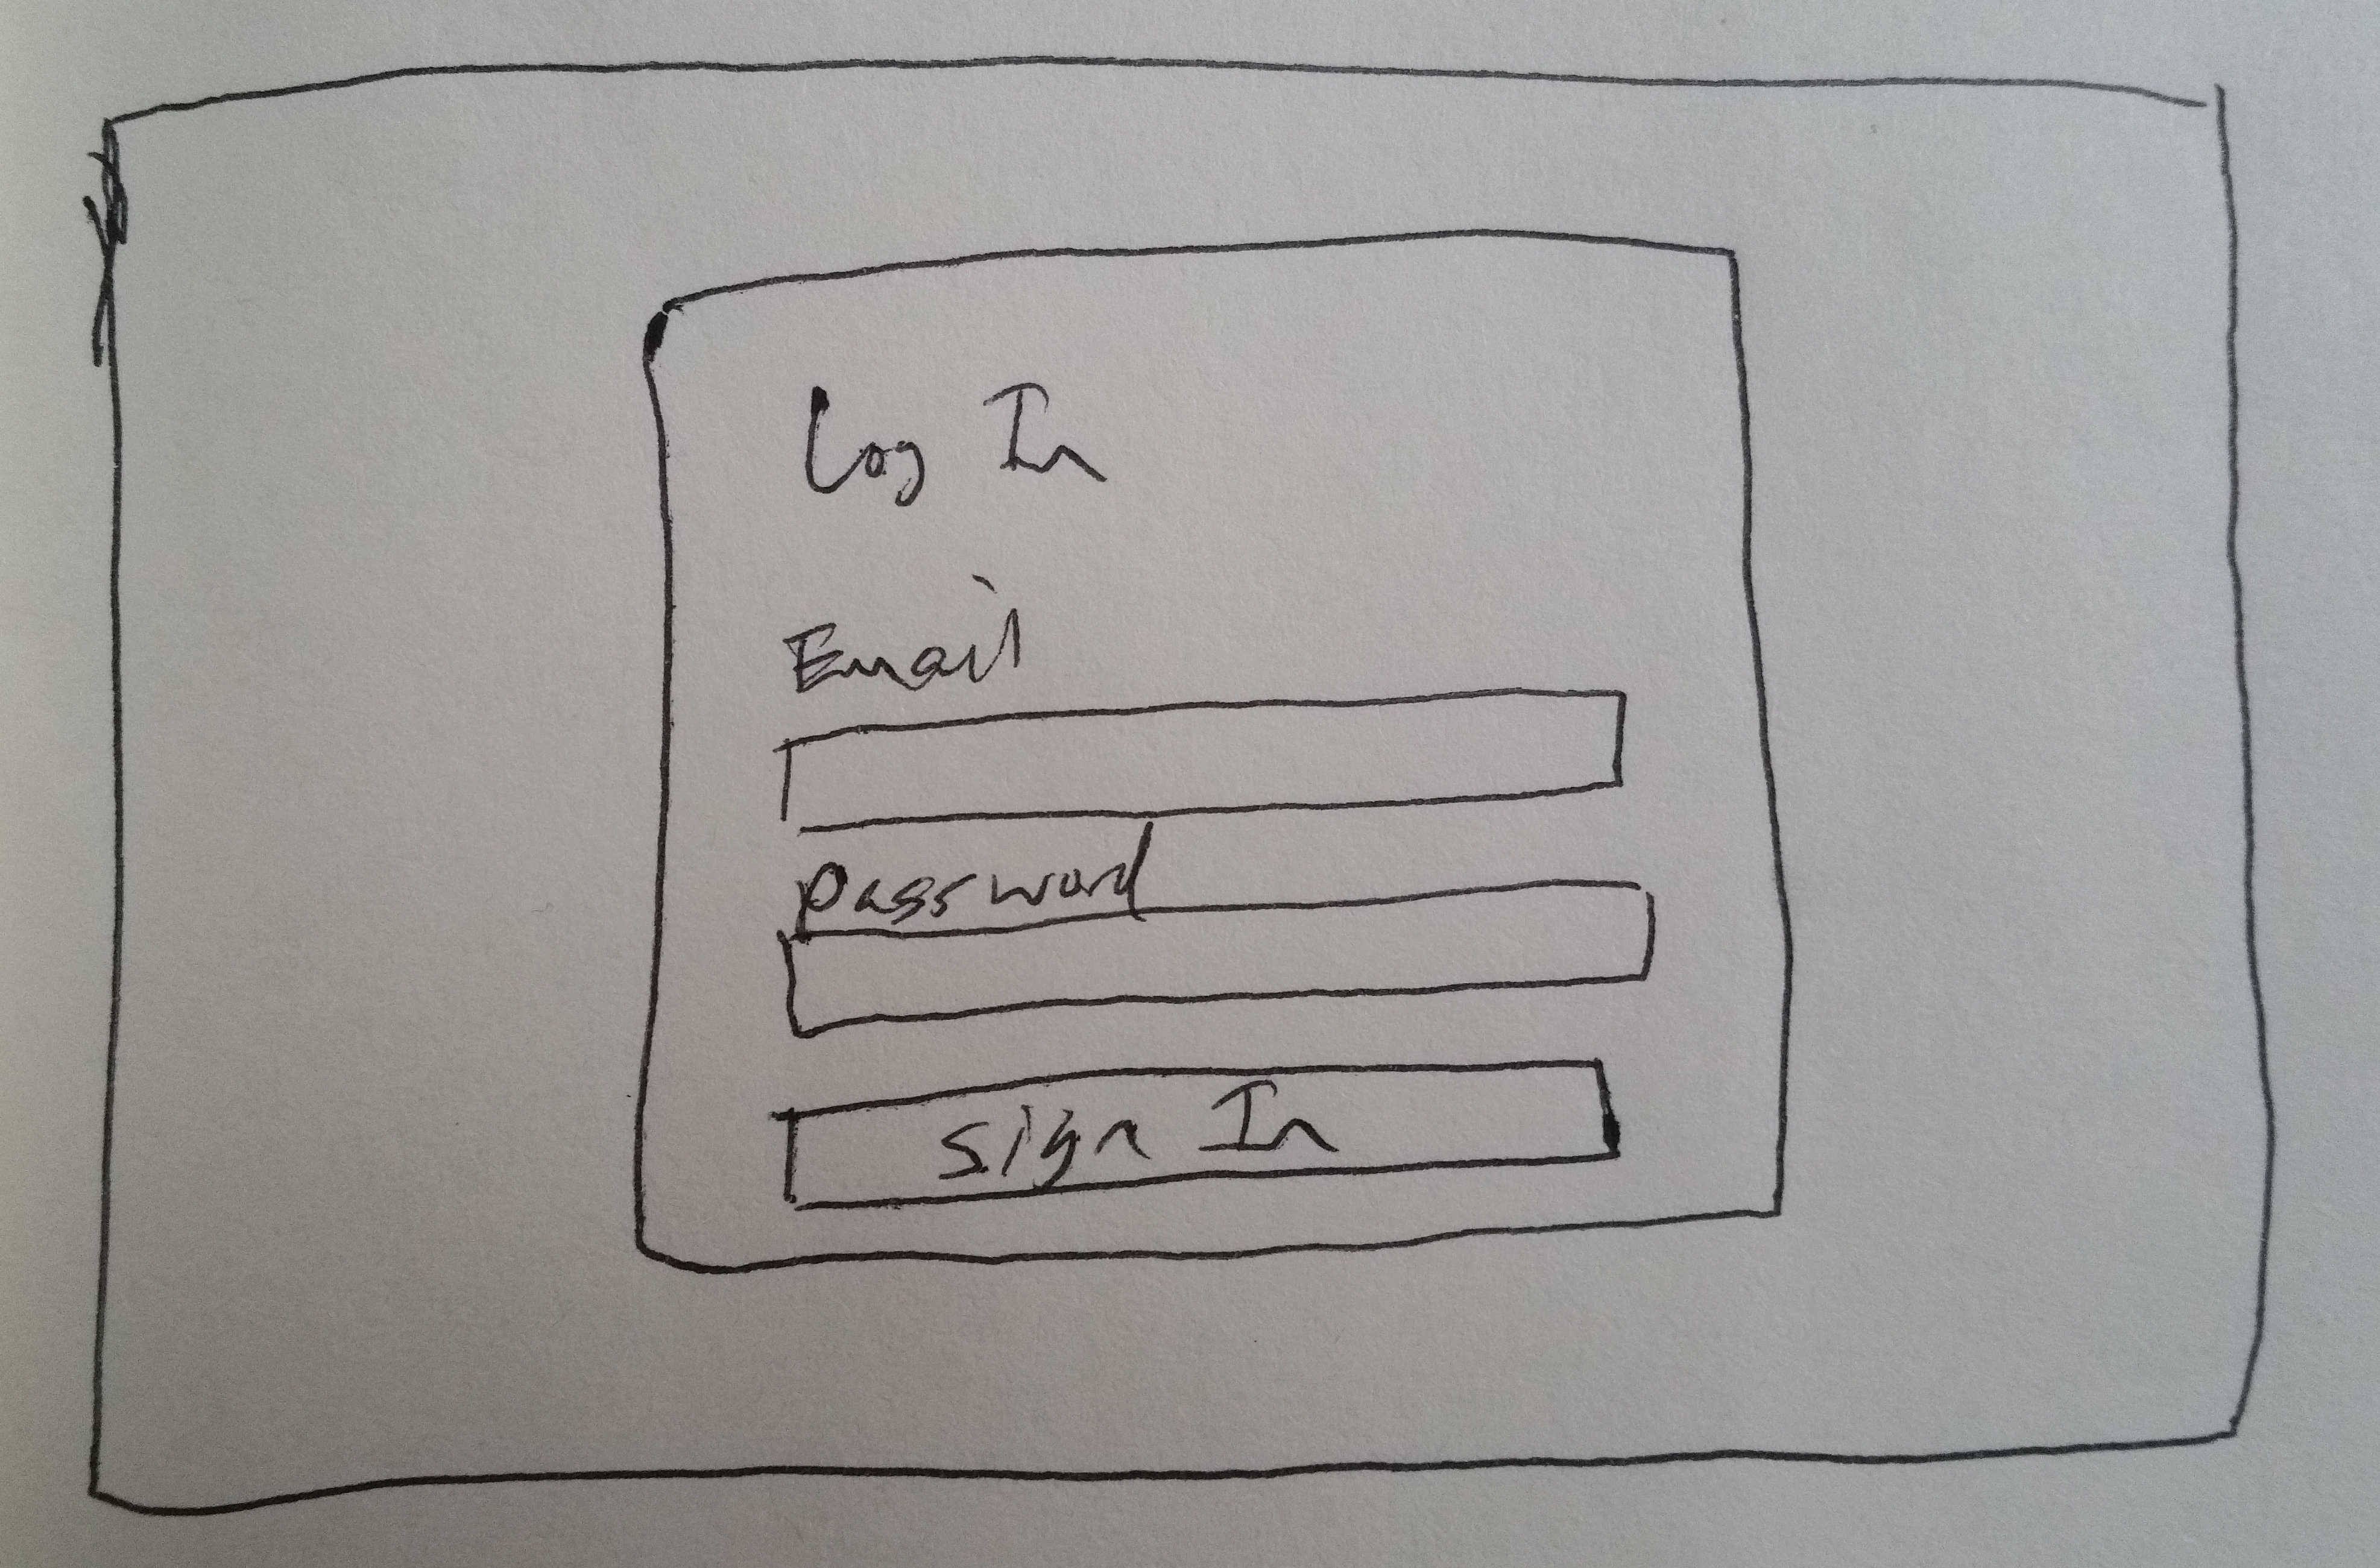 Log In
Email
password
Sign In